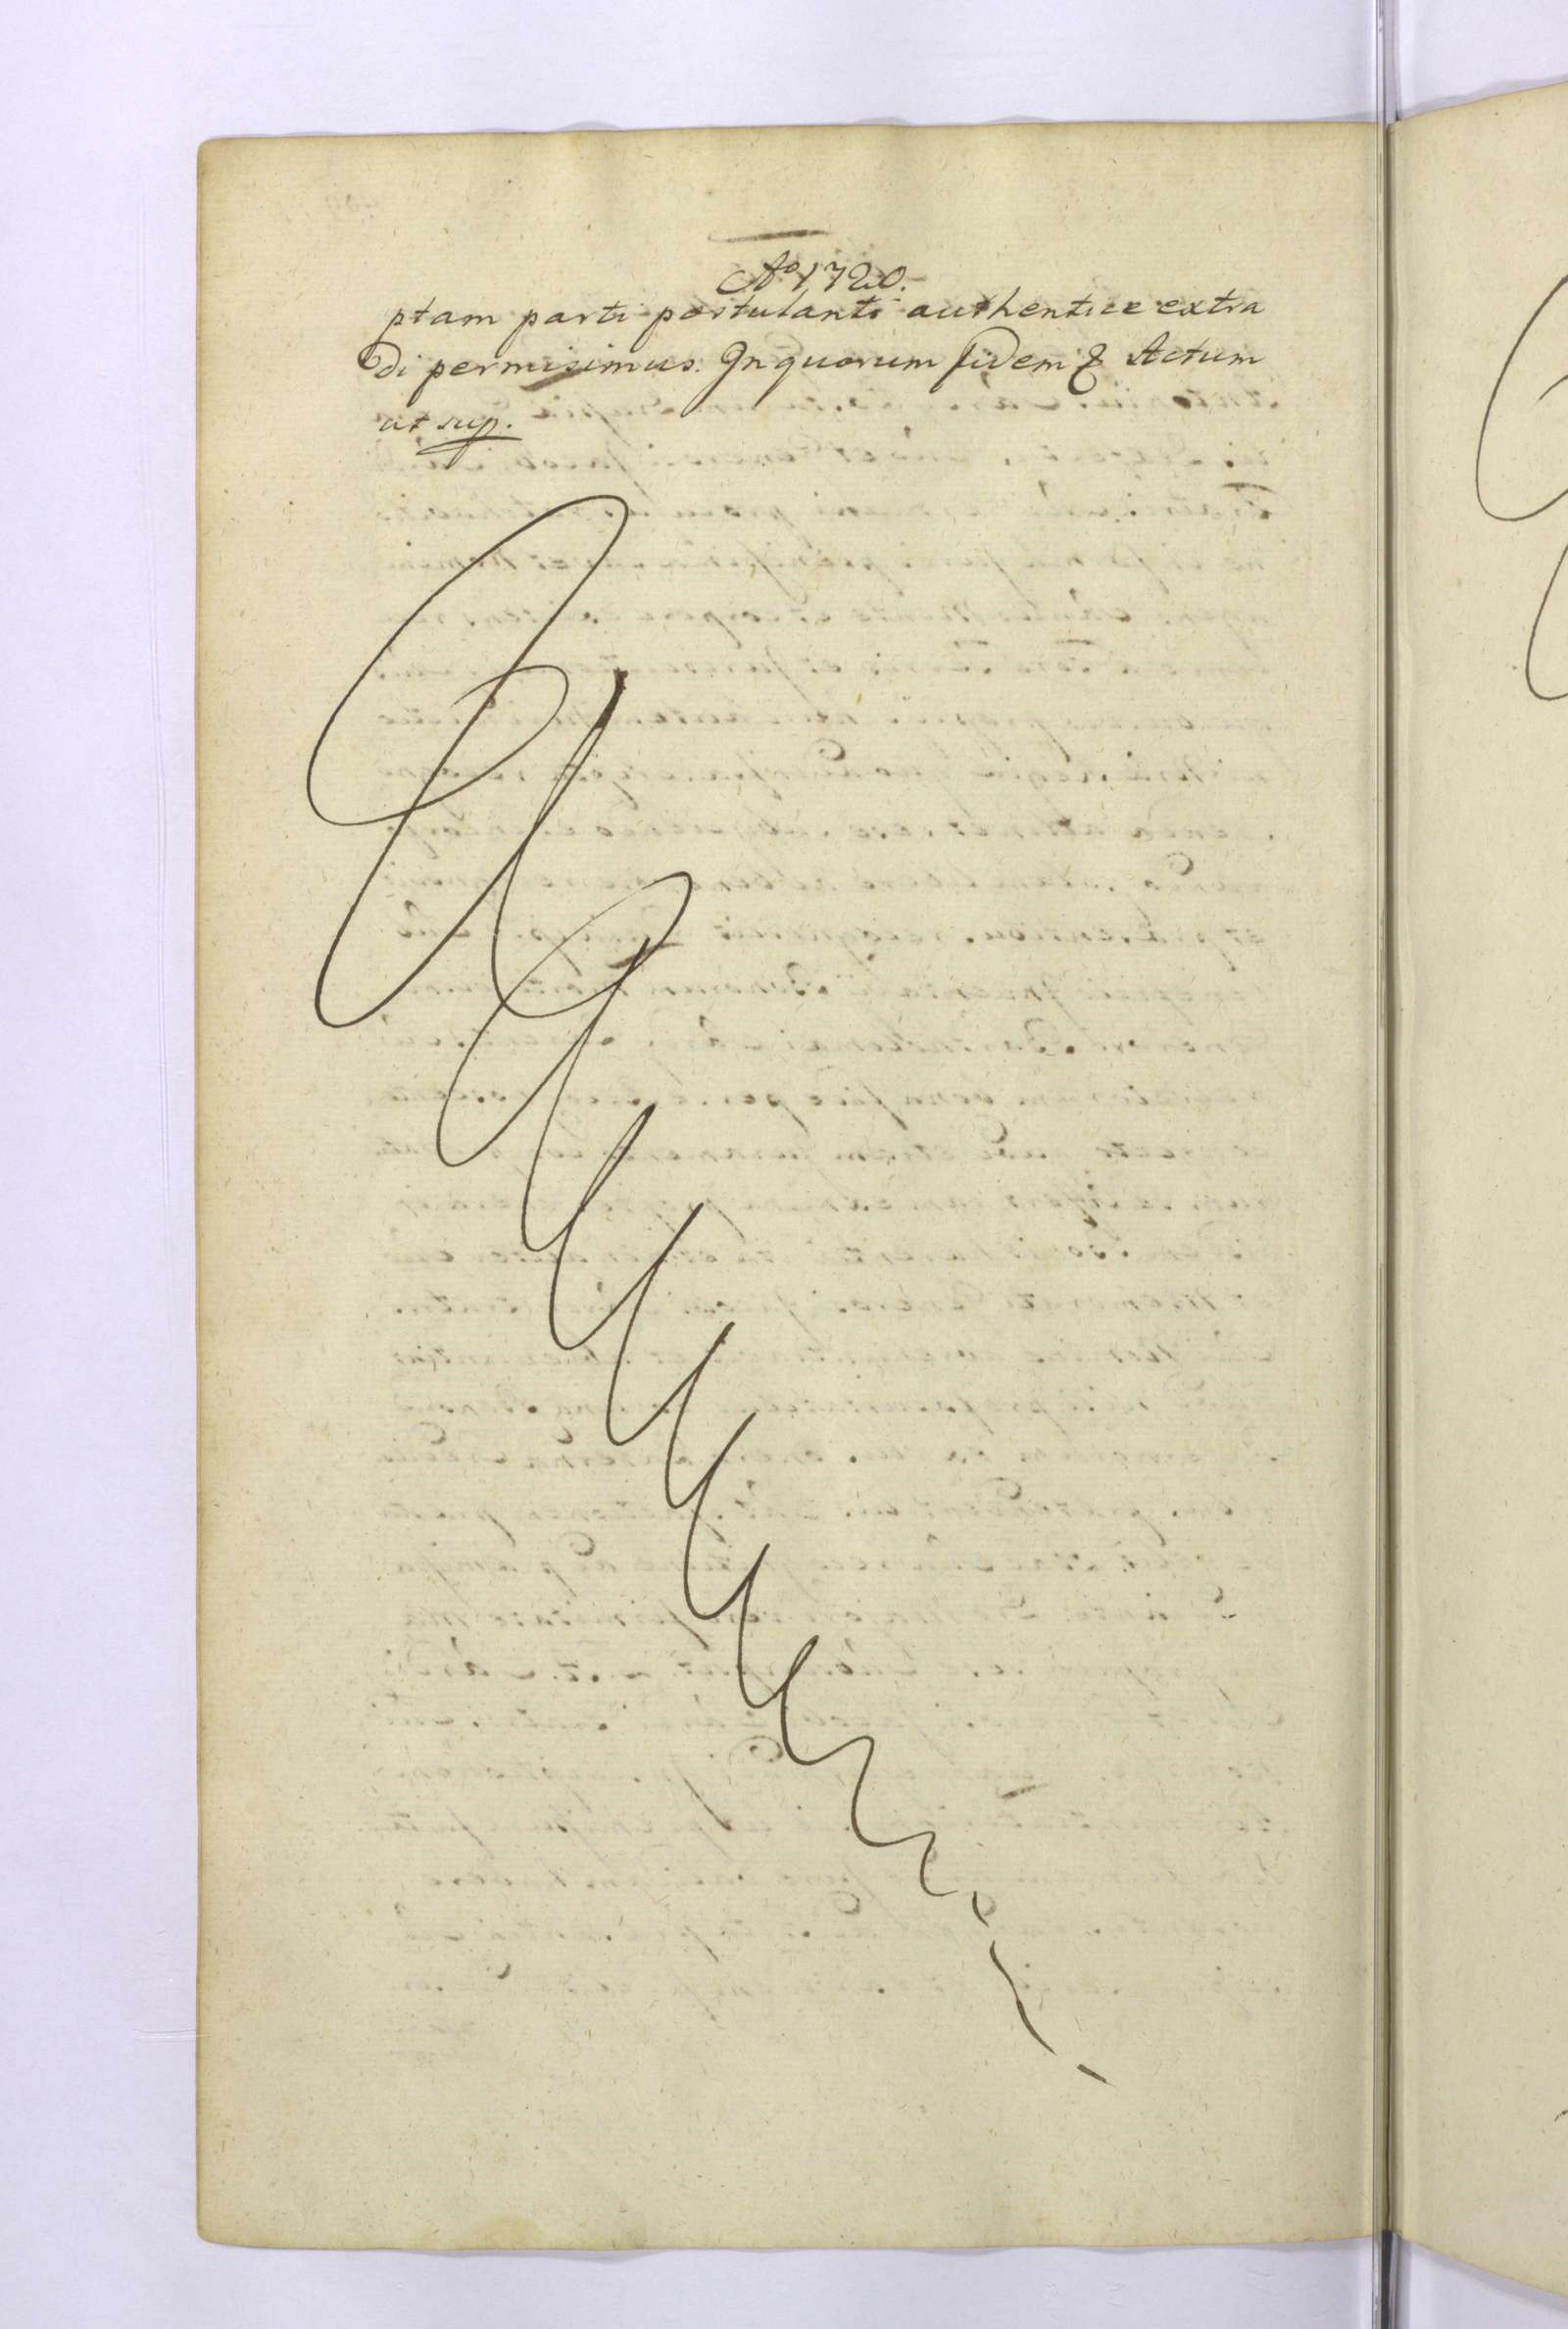 Ao 1720.
ptam parti postulanti authentice extra
di permisimus. In quorum fidem & Actum
ut sup.